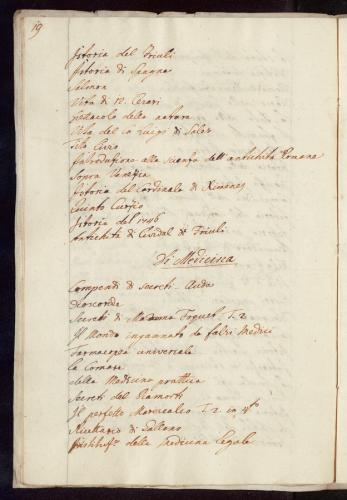 19
Istoria del Friuli
Istoria di Spagna
Salmon
Vita di 12. Cesari
Spettacolo della natura
Vita del co Luigi di Sales
Tito Livio
Introduzione alla scienza dell'antichità Romana
Sopra Venezia
Istoria del Cardinale di Ximenes
Quinto Curzio
Istoria del 1746
Antichità di Cividal di Friuli
Di Medicina
Compendi di Secreti - Auda
Dioscoride
Secreti di Madama Foquet T. 2
Il Mondo ingannato da falsi Medici
Farmacopea universale
la Comare
della Medicina prattica
Secreti del Piamonti
Il perfetto Marescalco T. 2 in 4to
Ricettario di
della medicina legale